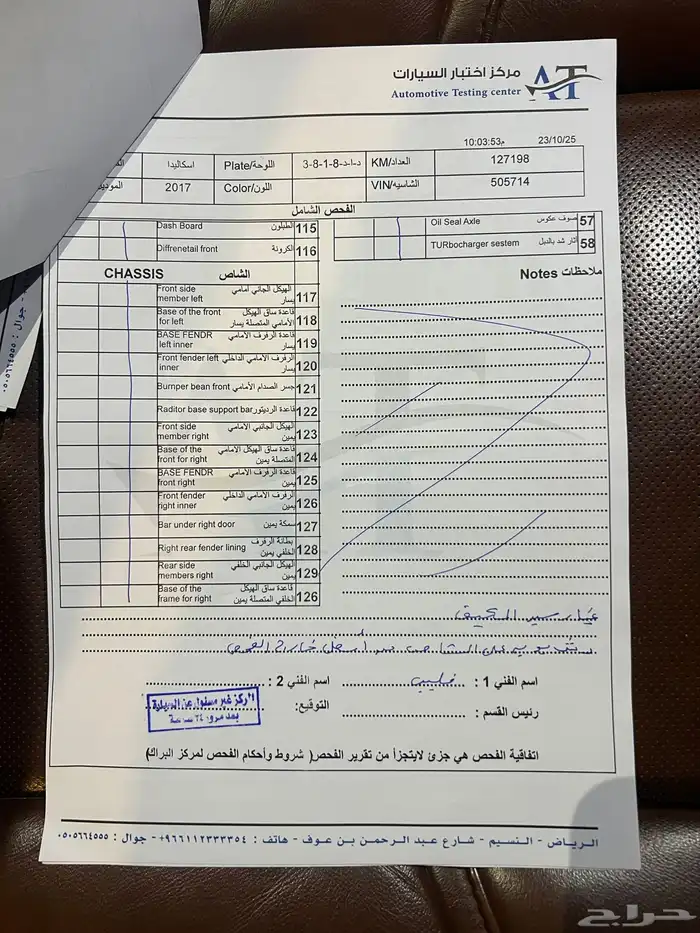 مركز اختبار السيارات
Automotive Testing center
10:03:53م 23/10/25
اسكاليدا Plate/اللوحة 3-8-1-8-د-ا-د KM/العداد 127198
2017 Color/اللون VIN/الشاسيه 505714
الفحص الشامل
Dash Board الطبلون 115
Diffrenetail front الكرونة 116
Oil Seal Axle صوف عكوس 57
TURbocharger sestem آثار شد بالدبل 58
CHASSIS الشاص
Notes ملاحظات
Front side member left الهيكل الجانبي امامي يسار 117
Base of the front for left قاعدة ساق الهيكل الأمامي المتصلة يسار 118
BASE FENDR left inner قاعدة الرفرف الأمامي يسار 119
Front fender left inner الرفرف الأمامي الداخلي يسار 120
Bumper bean front جسر الصدام الأمامي 121
Raditor base support bar قاعدة الرديتور 122
Front side member right الهيكل الجانبي الأمامي يمين 123
Base of the front for right قاعدة ساق الهيكل الامامي المتصلة يمين 124
BASE FENDR front right قاعدة الرفرف الامامي يمين 125
Front fender right inner الرفرف الامامي الداخلي يمين 126
Bar under right door سمكة يمين 127
Right rear fender lining بطانة الرفرف الخلفي يمين 128
Rear side members right الهيكل الجانبي الخلفي يمين 129
Base of the frame for right قاعدة ساق الهيكل الخلفي المتصلة يمين 126
اسم الفني 1 :
اسم الفني 2 :
رئيس القسم :
التوقيع:
المركز غير مسئول عن السيارة
بعد مرور ٢٤ ساعة
اتفاقية الفحص هي جزئ لايتجزأ من تقرير الفحص( شروط وأحكام الفحص لمركز البراك)
الرياض - النسيم - شارع عبد الرحمن بن عوف - هاتف : ٩٦٦١١٢٣٣٣٣٥٤+ - جوال : ٠٥٠٥٦٦٤٥٥٥
حراج